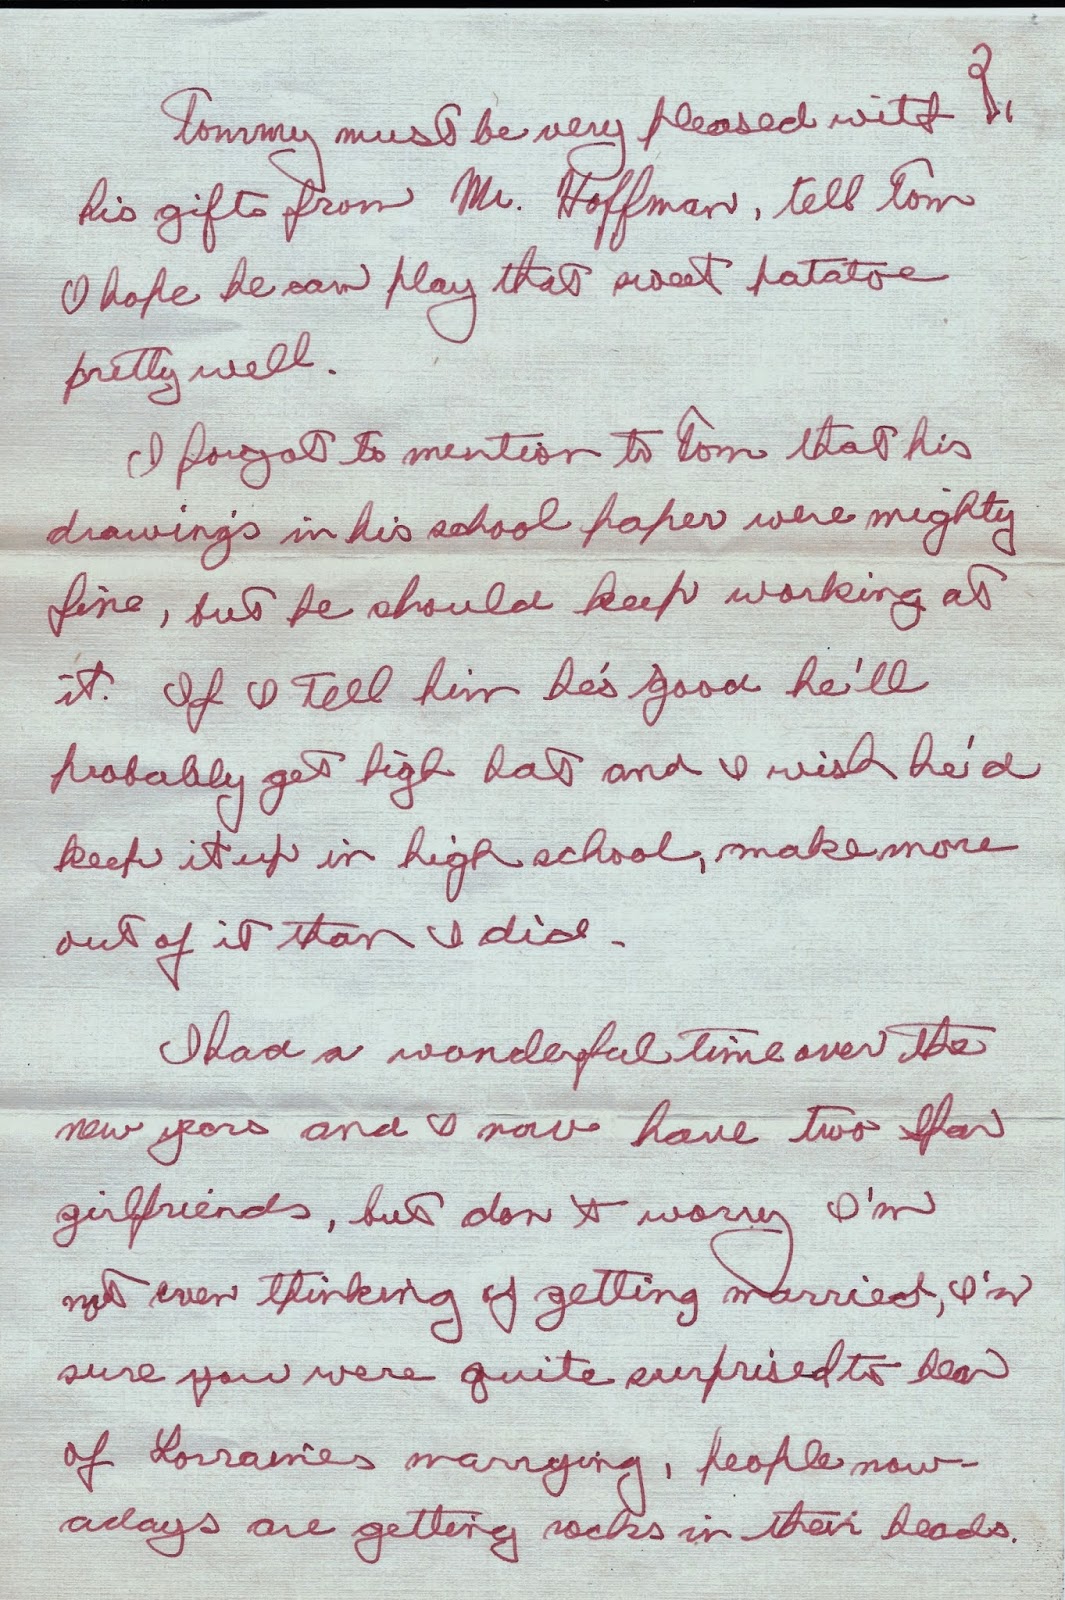 Tommy must be very pleased with
his gifts from Mr. Hoffman, tell Tom
I hope he can play that sweet patatoe
pretty well.
I forgot to mention to Tom that his
drawings in his school paper were mighty
fine, but he should keep working at
it. If I tell him he's good he'll
probably get high hat and I wish he'd
keep it up in high school, make more
out of it than I did.
I had a wonderful time over the
new years and I now have two
girlfriends, but don't worry I'm
not even thinking of getting married, I'm
sure you were quite surprised to hear
of Lorraine's marrying, people now-
adays are getting rocks in their heads.